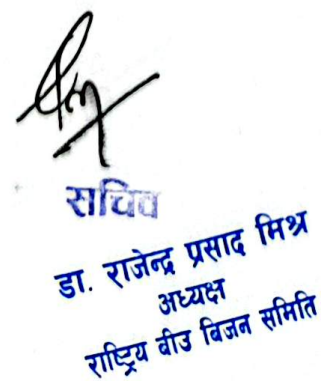 सचिव
डा. राजेन्द्र प्रसाद मिश्र
अध्यक्ष
राष्ट्रिय बीउ बिजन समिति